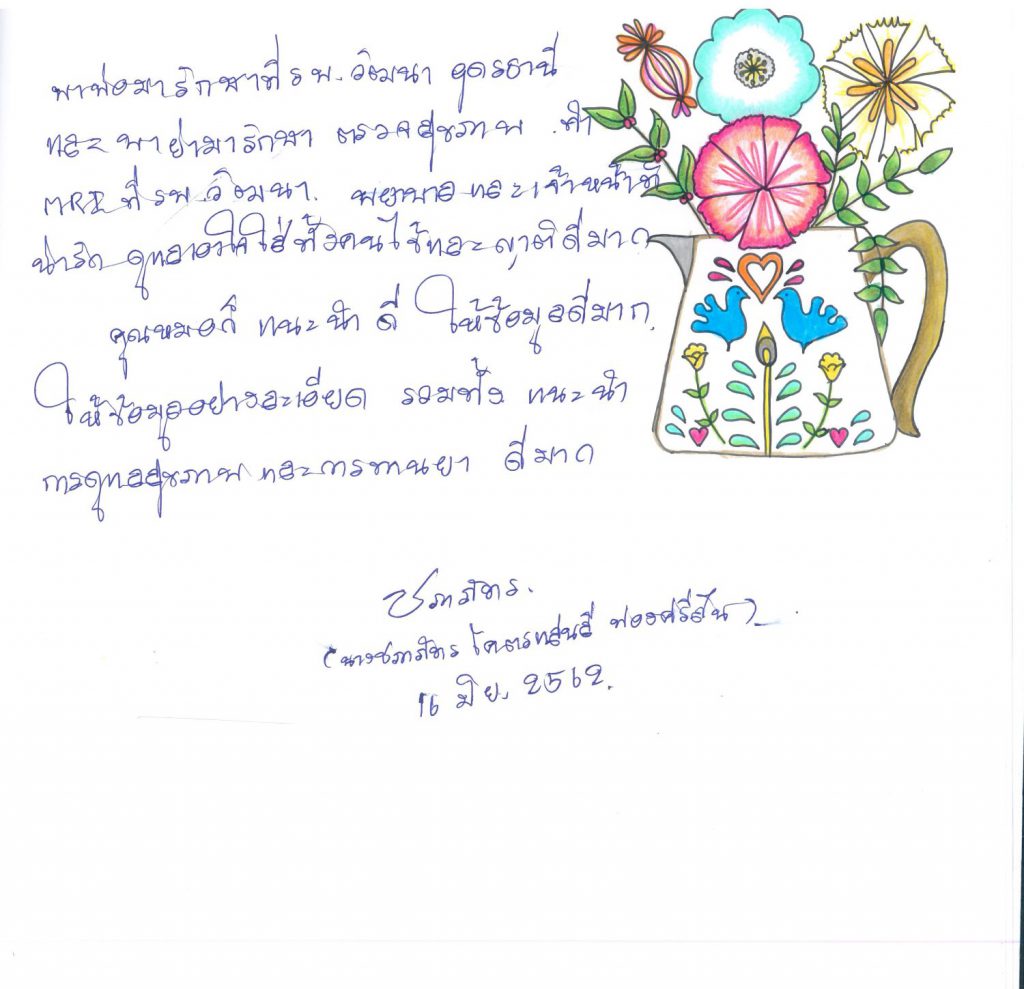 พาพ่อมารักษาที่ รพ.วัฒนา อุดรธานี
และ พาย่ามารักษา ตรวจสุขภาพ ทำ
MRI ที่ รพ.วัฒนา. พยาบาลและเจ้าหน้าที่
น่ารัก ดูแลเอาใจใส่ทั้งคนไข้และญาติดีมาก
คุณหมอก็ แนะนำ ดี ให้ข้อมูลดีมาก.
ให้ข้อมูลอย่างละเอียด รวมทั้ง แนะนำ
การดูแลสุขภาพ และการทานยา ดีมาก
ชภาภัทร.
(นางชภาภัทร โคตรแสนลี ฟองศรีสิน)
16 มิย. 2562.